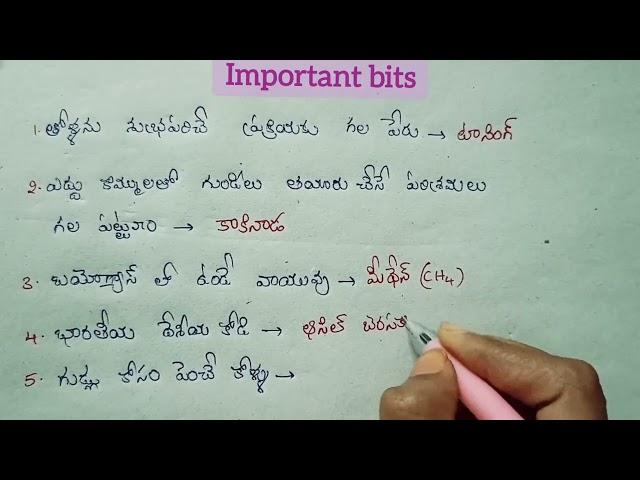 Important bits
1. తోళ్ళను శుభపరిచే ప్రక్రియకు గల పేరు → టానింగ్
2. ఎద్దు కొమ్ములతో గుండీలు తయారు చేసే పరిశ్రమలు
గల పట్టణం → కాకినాడ
3. బయోగ్యాస్ లో ఉండే వాయువు → మీథేన్ (CH4)
4. భారతీయ దేశీయ కోడి → ఆసిల్ బెరస
5. గుడ్లు కోసం పెంచే కోళ్ళు →